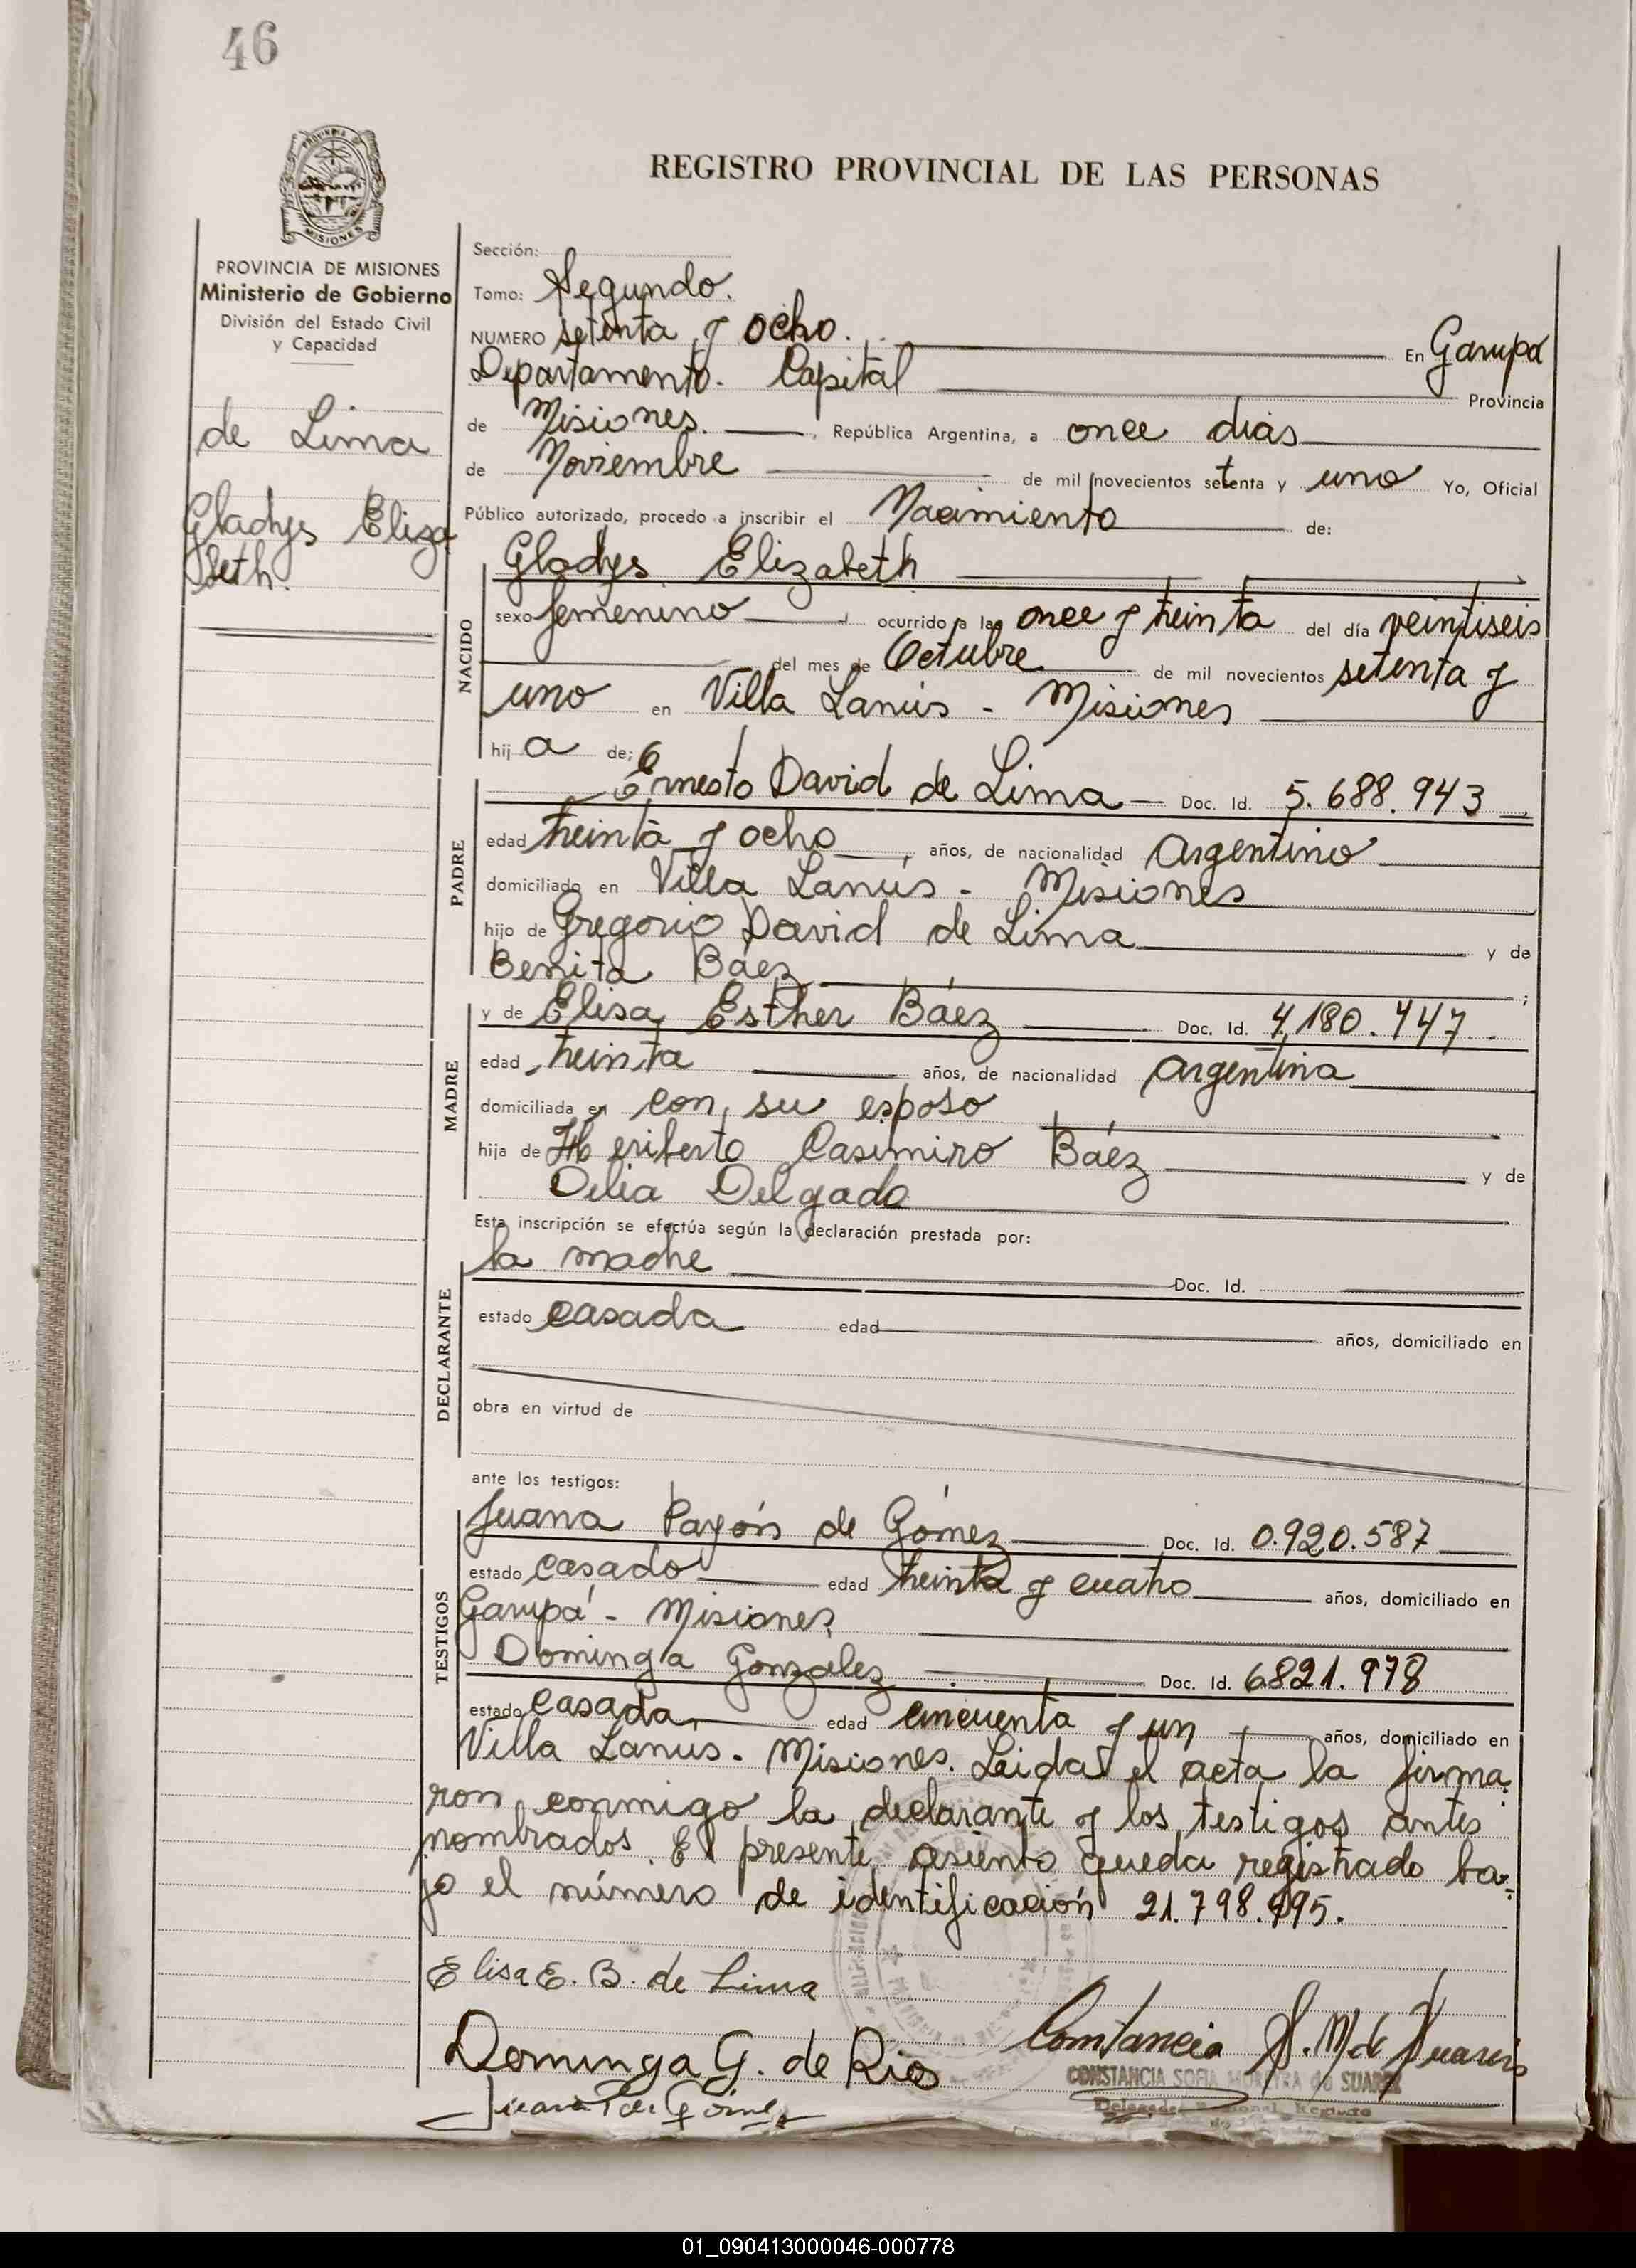 46
REGISTRO PROVINCIAL DE LAS PERSONAS
PROVINCIA DE MISIONES
Ministerio de Gobierno
División del Estado Civil
y Capacidad
de Lima
Gladys Eliza
beth.
Sección:
Tomo: Segundo.
NUMERO setenta y ocho. En Garupá
Departamento. Capital Provincia
de Misiones. , República Argentina, a once dias
de Noviembre de mil novecientos setenta y uno Yo, Oficial
Público autorizado, procedo a inscribir el Nacimiento de:
Gladys Elizabeth
NACIDO
sexo femenino ocurrido a las once y treinta del día veintiseis
del mes de Octubre de mil novecientos setenta y
uno en Villa Lanús - Misiones
hij a de:
PADRE
Ernesto David de Lima Doc. Id. 5.688.943
edad treinta y ocho , años, de nacionalidad argentino
domiciliado en Villa Lanús - Misiones
hijo de Gregorio David de Lima y de
Benita Báez ;
MADRE
y de Elisa Esther Báez Doc. Id. 4.180.447
edad treinta años, de nacionalidad argentina
domiciliada en con su esposo
hija de Heriberto Casimiro Báez y de
Delia Delgado
Esta inscripción se efectúa según la declaración prestada por:
DECLARANTE
la madre Doc. Id.
estado casada edad años, domiciliado en
obra en virtud de
ante los testigos:
TESTIGOS
Juana Payón de Gómez Doc. Id. 0.920.587
estado casado edad treinta y cuatro años, domiciliado en
Garupá - Misiones
Dominga Gonzalez Doc. Id. 6821.978
estado casada edad cincuenta y un años, domiciliado en
Villa Lanus - Misiones. Leida el acta la firma
ron conmigo la declarante y los testigos antes
nombrados. El presente asiento queda registrado ba-
jo el número de identificación 21.798.995.
Elisa E. B. de Lima
Constancia S. M. de Suarez
Dominga G. de Rios
CONSTANCIA SOFIA MOREYRA de SUAREZ
Juana P de Gómez
01_090413000046-000778